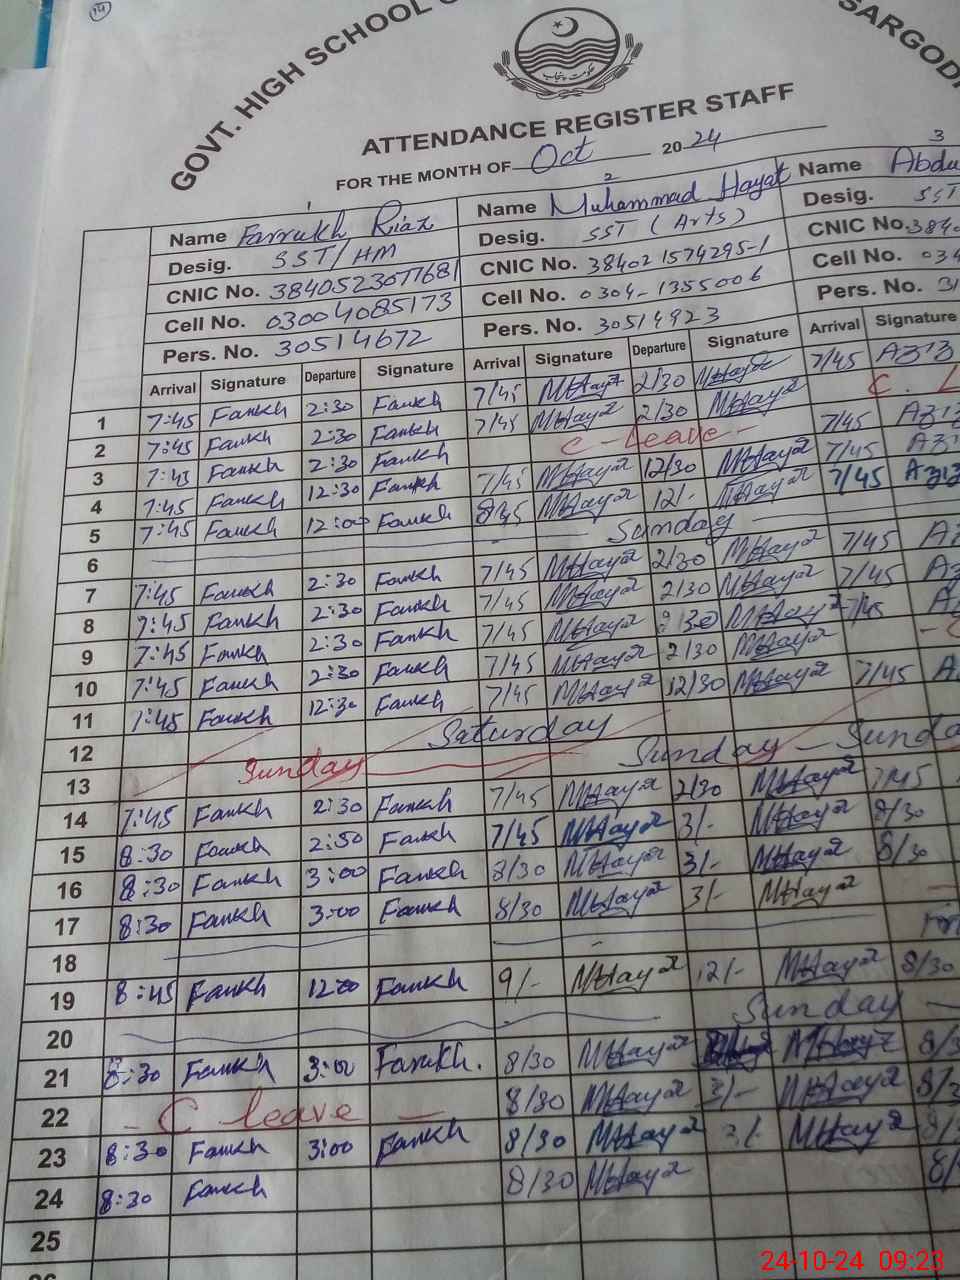 GOVT. HIGH SCHOOL
SARGOD
حکومت پنجاب
ATTENDANCE REGISTER STAFF
FOR THE MONTH OF Oct 2024
1
Name Farrukh Riaz
Desig. SST/HM
CNIC No. 3840523077681
Cell No. 03004085173
Pers. No. 30514672
2
Name Muhammad Hayat
Desig. SST (Arts)
CNIC No. 38402 1574295-1
Cell No. 0304-1355006
Pers. No. 30514923
3
Name Abdu
Desig. SST
CNIC No. 3840
Cell No. 034
Pers. No. 31
Arrival Signature Departure Signature Arrival Signature Departure Signature Arrival Signature
1 7:45 Farrukh 2:30 Farrukh 7/45 MHayat 2/30 MHayat 7/45 Aziz
2 7:45 Farrukh 2:30 Farrukh 7/45 MHayat 2/30 MHayat C. L
3 7:45 Farrukh 2:30 Farrukh C-Leave- 7/45 Aziz
4 7:45 Farrukh 12:30 Farrukh 7/45 MHayat 12/30 MHayat 7/45 Aziz
5 7:45 Farrukh 12:00 Farrukh 8/45 MHayat 12/- MHayat 7/45 Aziz
6 Sunday
7 7:45 Farrukh 2:30 Farrukh 7/45 MHayat 2/30 MHayat 7/45 Az
8 7:45 Farrukh 2:30 Farrukh 7/45 MHayat 2/30 MHayat 7/45 Az
9 7:45 Farrukh 2:30 Farrukh 7/45 MHayat 2/30 MHayat 7/45 A
10 7:45 Farrukh 2:30 Farrukh 7/45 MHayat 2/30 MHayat - C
11 7:45 Farrukh 12:30 Farrukh 7/45 MHayat 12/30 MHayat 7/45 A
12 Saturday
13 Sunday Sunday - Sunda
14 7:45 Farrukh 2:30 Farrukh 7/45 MHayat 2/30 MHayat 7/45
15 8:30 Farrukh 2:50 Farrukh 7/45 MHayat 3/- MHayat 8/30
16 8:30 Farrukh 3:00 Farrukh 8/30 MHayat 3/- MHayat 8/30
17 8:30 Farrukh 3:00 Farrukh 8/30 MHayat 3/- MHayat
18
19 8:45 Farrukh 12:00 Farrukh 9/- MHayat 12/- MHayat 8/30
20 Sunday
21 8:30 Farrukh 3:00 Farrukh. 8/30 MHayat MHayat 8/3
22 - C leave - 8/30 MHayat 3/- MHayat 8/3
23 8:30 Farrukh 3:00 Farrukh 8/30 MHayat 3/- MHayat 8/3
24 8:30 Farrukh 8/30 MHayat 8/
25
24-10-24 09:23